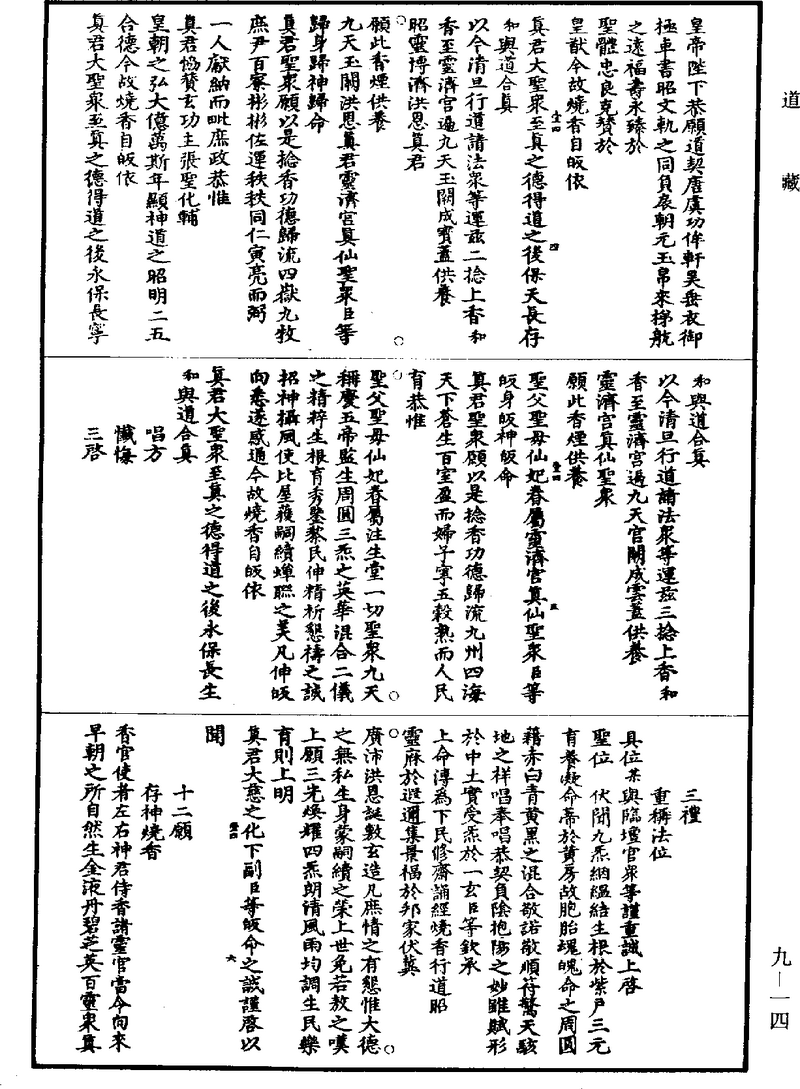 道藏
皇帝陛下恭願道契唐虞功侔軒昊垂衣御
極車書昭文軌之同負扆朝元玉帛來梯航
之遠福壽永臻於
聖體忠良克贊於
皇猷今故燒香自皈依
真君大聖衆至真之德得道之後保天長存
和與道合真
以今清旦行道諸法衆等運茲二捻上香和
香至靈濟宮遍九天玉闕成寶蓋供養
昭靈博濟洪恩真君
願此香煙供養
九天玉闕洪恩真君靈濟宮真仙聖衆臣等
歸身歸神歸命
真君聖衆願以是捻香功德歸流四嶽九牧
庶尹百寮彬彬佐運秩秩同仁寅亮而弼
一人獻納而毗庶政恭惟
真君協贊玄功主張聖化輔
皇朝之弘大億萬斯年顯神道之昭明二五
合德今故燒香自皈依
真君大聖衆至真之德得道之後永保長寧
和與道合真
以今清旦行道諸法衆等運茲三捻上香和
香至靈濟宮遍九天宮闕成雲蓋供養
靈濟宮真仙聖衆
願此香煙供養
聖父聖母仙妃眷屬靈濟宮真仙聖衆臣等
皈身皈神皈命
真君聖衆願以是捻香功德歸流九州四海
天下蒼生百室盈而婦子寧五穀熟而人民
育恭惟
聖父聖母仙妃眷屬注生堂一切聖衆九天
稱慶五帝監生周圓三炁之英華混合二儀
之精粹生根育秀鑒黎民伸精祈懇禱之誠
招神攝風使比屋獲嗣續蟬聯之美凡伸皈
向悉遂感通今故燒香自皈依
真君大聖衆至真之德得道之後永保長生
和與道合真
唱方
懺悔
三啓
三禮
重稱法位
具位某與臨壇官衆等謹重誠上啓
聖位 伏聞九炁納溫結生根於紫戶三元
育養凝命蒂於黃房故胞胎魂魄命之周圓
藉赤白青黃黑之混合敬諾敬順符驚天駭
地之祥唱奉唱恭契負陰抱陽之妙雖賦形
於中土實受炁於一玄臣等欽承
上命溥為下民修齋誦經燒香行道昭
靈庥於遐邇集景福於邦家伏冀
廣沛洪恩誕敷玄造凡庶情之有懇惟大德
之無私生身蒙嗣續之榮上世免若敖之嘆
上願三光煥耀四炁朗清風雨均調生民樂
育則上明
真君大慈之化下副臣等皈命之誠謹啓以
聞
十二願
存神燒香
香官使者左右神君侍香諸靈官當令向來
早朝之所自然生金液丹碧芝英百靈衆真
九—一四